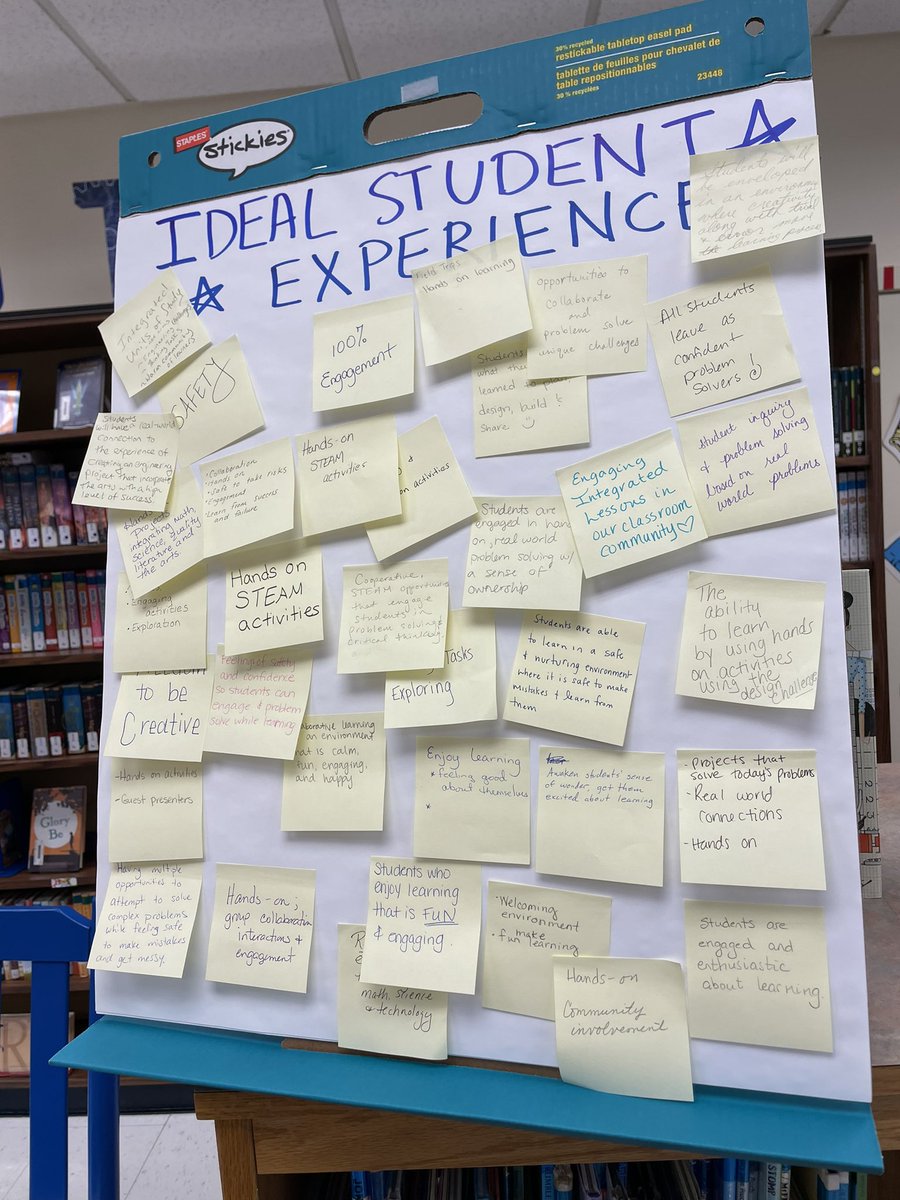 30% recycled
restickable tabletop easel pad
tablette de feuilles pour chevalet de
table repositionnables
30 % recyclées
23448
STAPLES
stickies
IDEAL STUDENT
EXPERIENCE
Students will
be enveloped
in an environment
where creativity
along with trial
& error
learning process
Integrated
Units of Study
SAFETY
100%
Engagement
Field Trips
Hands on learning
opportunities to
collaborate
and
problem solve
unique challenges
Students
what they
learned to plan,
design, build &
share.
All students
leave as
confident
problem
solvers!
Students
will have a real world
connection to
the experience of
creating an engineering
project that incorporates
the arts with a high
level of success
Collaboration
Hands on
Safe to take risks
Engagement
Learn from success
and failure
Hands-on
STEAM
activities
&
on activities
Engaging
Integrated
Lessons in
our classroom
community
Student inquiry
& problem solving
based on real
world problems
Hands
Projects
integrating math,
science, quality
literature and
the arts.
Students are
engaged in hands
on, real world
problem solving w/
a sense of
ownership
• Engaging
activities
• Exploration
Hands on
STEAM
activities
Cooperative,
STEAM opportunities
that engage
students in
problem solving &
critical thinking
Tasks
Exploring
Students are able
to learn in a safe
& nurturing environment
where it is safe to make
mistakes & learn from
them
The
ability
to learn
by using hands
on activities
using the
design challenge
to be
Creative
Feeling of safety
and confidence
so students can
engage & problem
solve while learning
learning
an environment
that is calm,
fun, engaging,
and happy
Enjoy learning
* feeling good
about themselves
*
Awaken students' sense
of wonder, get them
excited about learning
• Projects that
solve today's problems
- Real world
connections
- Hands on
- Hands on activities
- Guest presenters
Having multiple
opportunities to
attempt to solve
complex problems
while feeling safe
to make mistakes
and get messy.
Hands-on;
group collaboration
interactions &
engagement
Students who
enjoy learning
that is FUN
& engaging.
math, science
& technology
• Welcoming
environment
• make
fun learning
Hands-on
Community
involvement
Students are
engaged and
enthusiastic
about learning.
Glory
Be